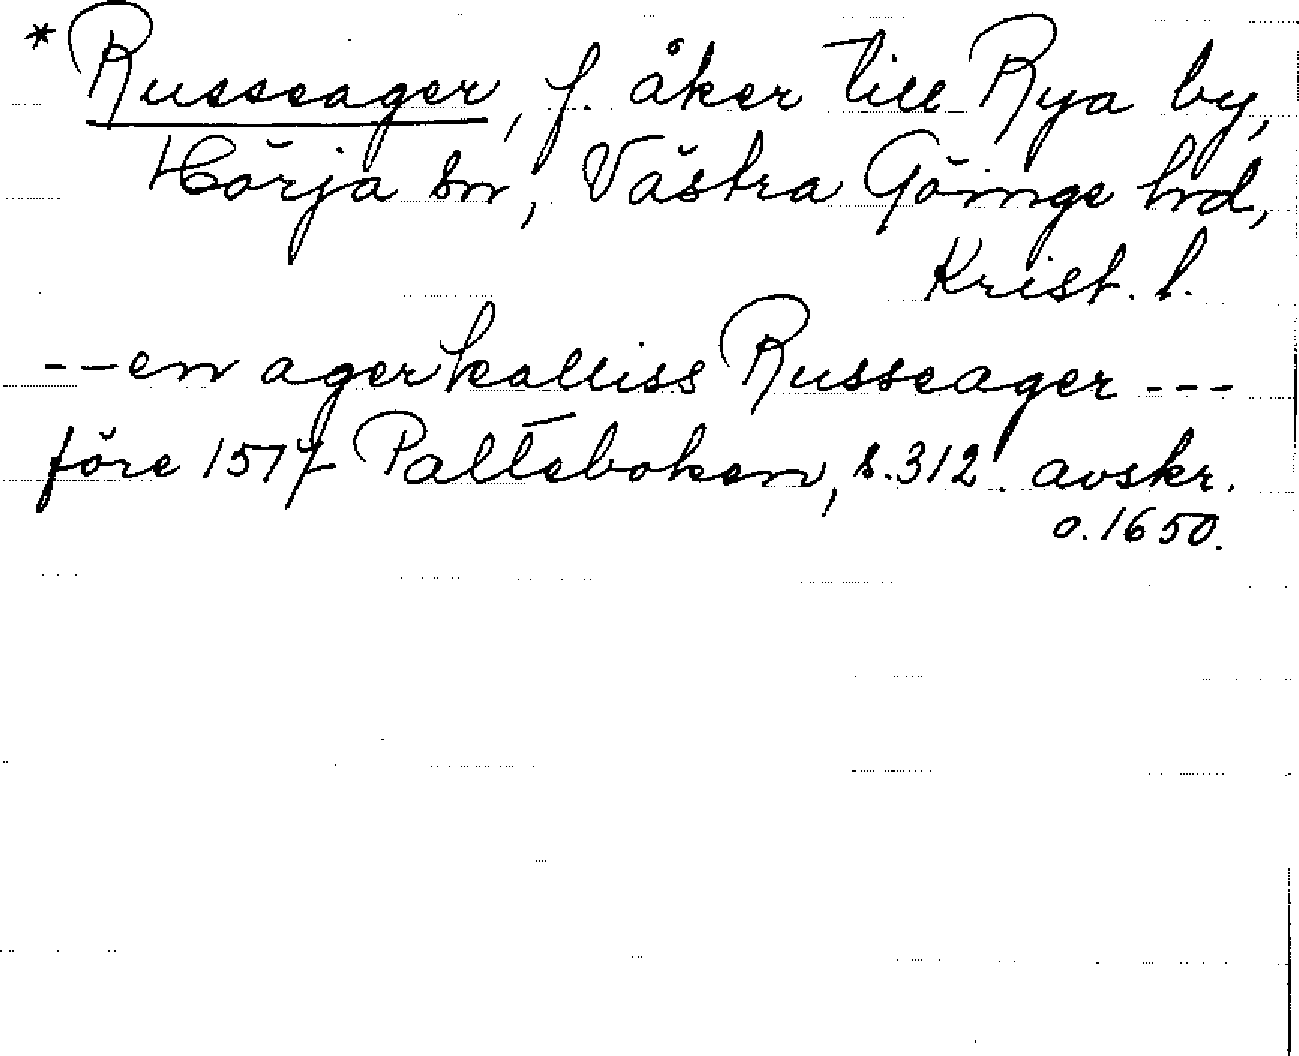 * Russeager, f. åker till Rya by,
Hörja sn, Västra Göinge hrd,
Krist. l.
--en ager kalliss Russeager ---
före 1517 Palteboken, s. 312. avskr.
o. 1650.